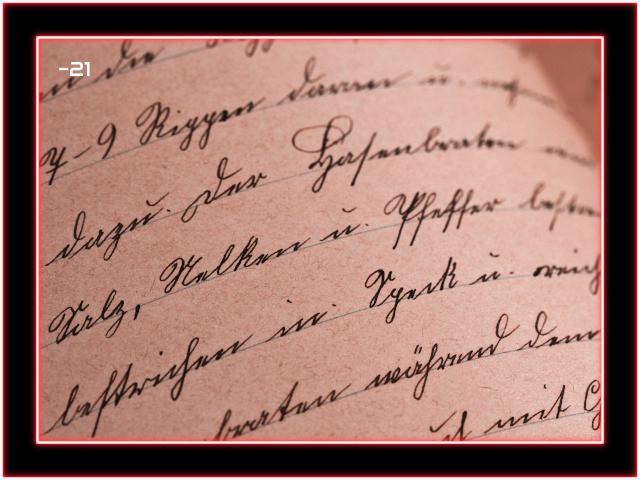 -21
n die
7-9 Rippen daran u.
dazu. Der Hasenbraten
Salz, Nelken u. Pfeffer
bestrichen in Speck u.
braten während dem
mit